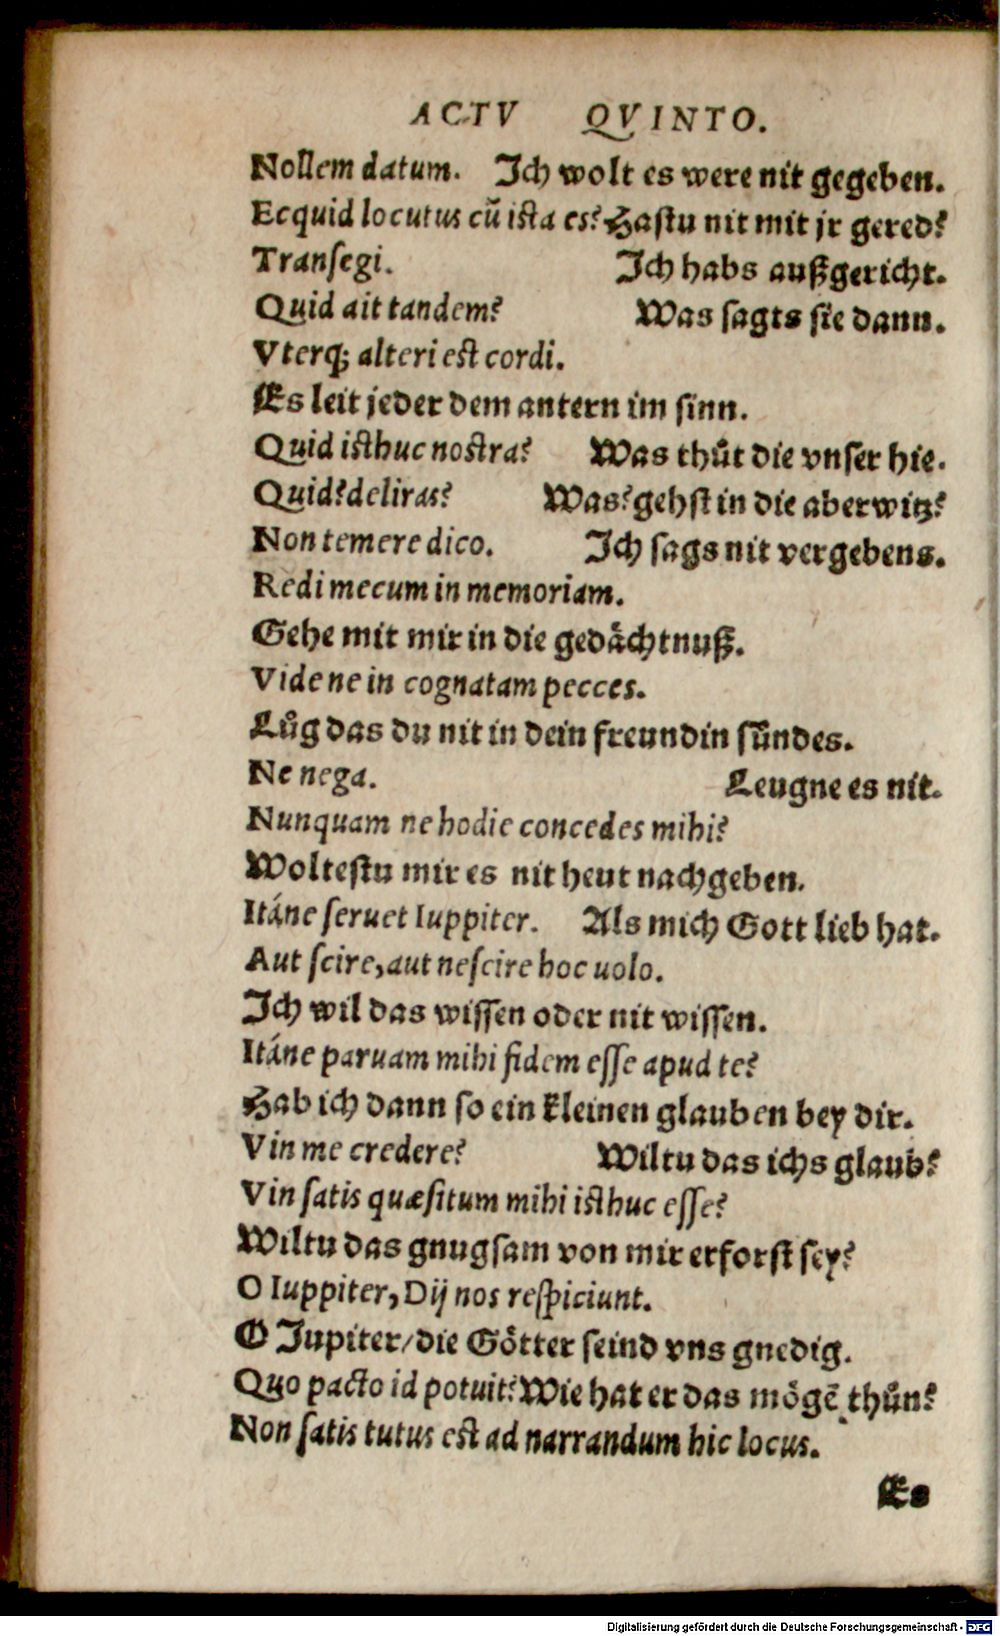 ACTV QVINTO.
Nollem datum. Ich wolt es were nit gegeben.
Ecquid locutus cũ ista es? Hastu nit mit jr gered?
Transegi. Ich habs außgericht.
Quid ait tandem? Was sagts sie dann.
Vterq; alteri est cordi.
Es leit jeder dem antern im sinn.
Quid isthuc nostra? Was thůt die vnser hie.
Quid? deliras? Was? gehst in die aberwitz?
Non temere dico. Ich sags nit vergebens.
Redi mecum in memoriam.
Gehe mit mir in die gedächtnuß.
Vide ne in cognatam pecces.
Lůg das du nit in dein freundin sündes.
Ne nega. Leugne es nit.
Nunquam ne hodie concedes mihi?
Woltestu mir es nit heut nachgeben.
Itáne seruet Iuppiter. Als mich Gott lieb hat.
Aut scire, aut nescire hoc uolo.
Ich wil das wissen oder nit wissen.
Itáne paruam mihi fidem esse apud te?
Hab ich dann so ein kleinen glauben bey dir.
Vin me credere? Wiltu das ichs glaub?
Vin satis quæsitum mihi isthuc esse?
Wiltu das gnugsam von mir erforst sey?
O Iuppiter, Dij nos respiciunt.
O Jupiter/ die Götter seind vns gnedig.
Quo pacto id potuit? Wie hat er das mögē thůn?
Non satis tutus est ad narrandum hic locus.
Es
Digitalisierung gefördert durch die Deutsche Forschungsgemeinschaft - DFG